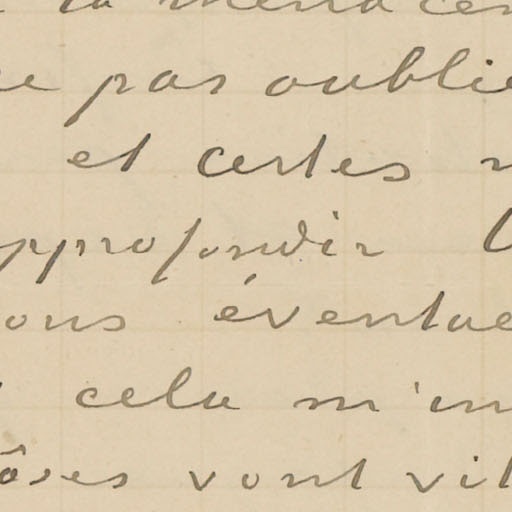 pas oublie
et certes
approfondir
ous éventue
cela m'en
ôses vont vit